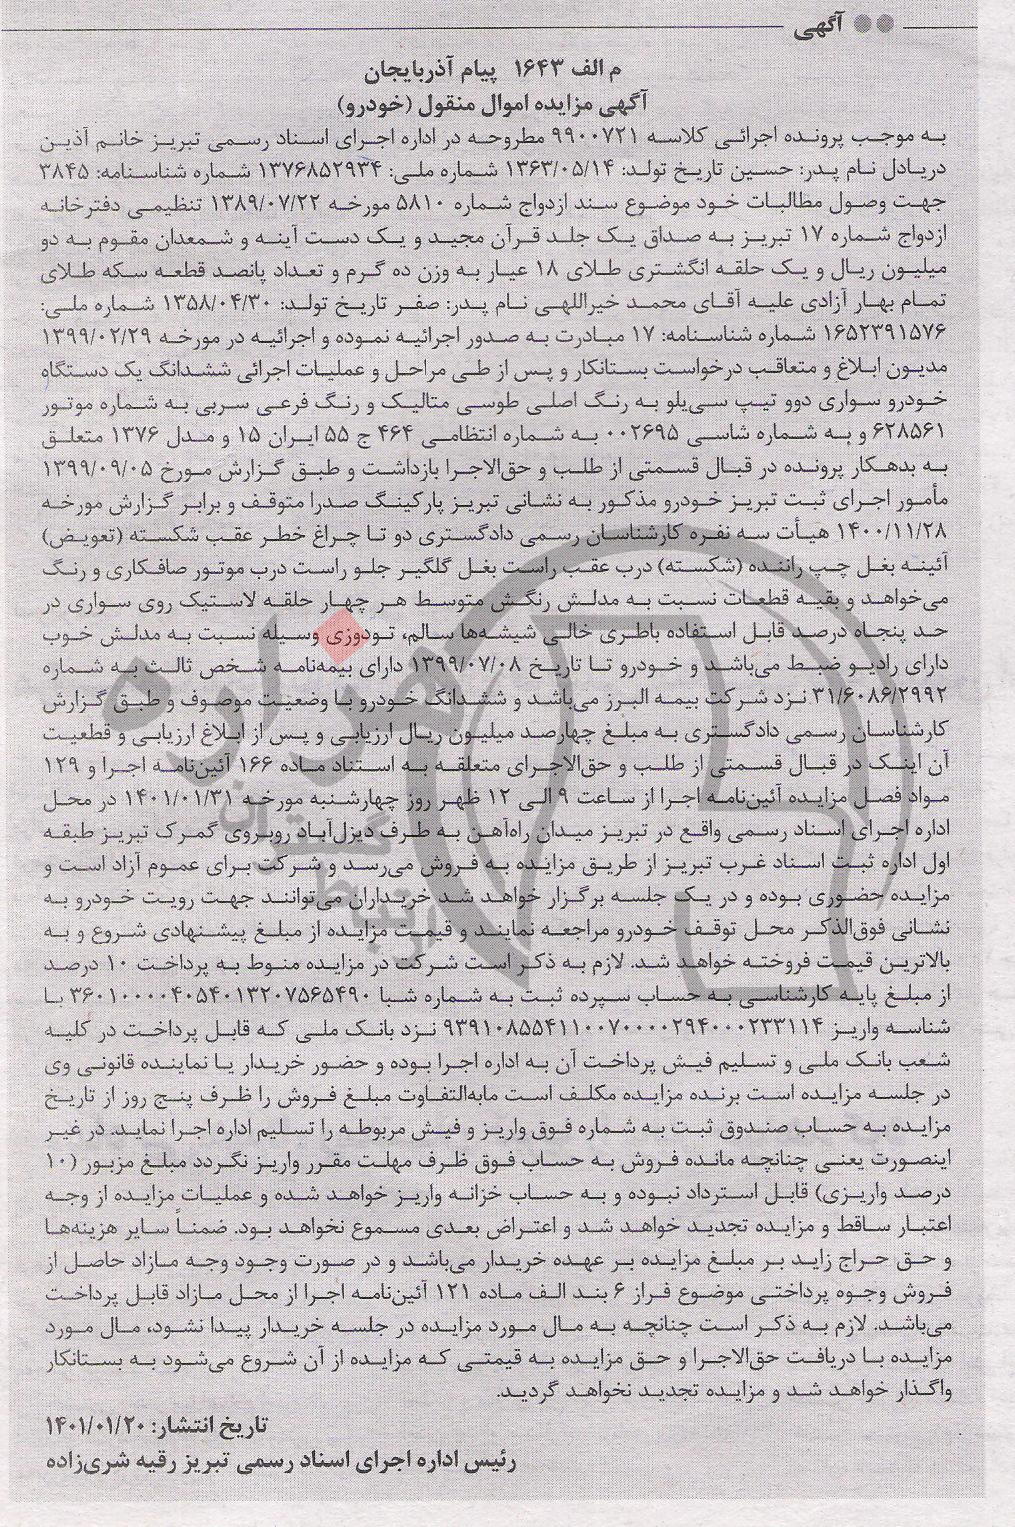 آگهی
م الف ۱۶۴۳ پیام آذربایجان
آگهی مزایده اموال منقول (خودرو)
به موجب پرونده اجرائی کلاسه ۹۹۰۰۷۲۱ مطروحه در اداره اجرای اسناد رسمی تبریز خانم آذین
دریادل نام پدر: حسین تاریخ تولد: ۱۳۶۳/۰۵/۱۴ شماره ملی: ۱۳۷۶۸۵۲۹۳۴ شماره شناسنامه: ۳۸۴۵
جهت وصول مطالبات خود موضوع سند ازدواج شماره ۵۸۱۰ مورخه ۱۳۸۹/۰۷/۲۲ تنظیمی دفترخانه
ازدواج شماره ۱۷ تبریز به صداق یک جلد قرآن مجید و یک دست آینه و شمعدان مقوم به دو
میلیون ریال و یک حلقه انگشتری طلای ۱۸ عیار به وزن ده گرم و تعداد پانصد قطعه سکه طلای
تمام بهار آزادی علیه آقای محمد خیراللهی نام پدر: صفر تاریخ تولد: ۱۳۵۸/۰۴/۳۰ شماره ملی:
۱۶۵۲۳۹۱۵۷۶ شماره شناسنامه: ۱۷ مبادرت به صدور اجرائیه نموده و اجرائیه در مورخه ۱۳۹۹/۰۲/۲۹
مدیون ابلاغ و متعاقب درخواست بستانکار و پس از طی مراحل و عملیات اجرائی ششدانگ یک دستگاه
خودرو سواری دوو تیپ سی‌یلو به رنگ اصلی طوسی متالیک و رنگ فرعی سربی به شماره موتور
۶۲۸۵۶۱ و به شماره شاسی ۰۰۲۶۹۵ به شماره انتظامی ۴۶۴ ج ۵۵ ایران ۱۵ و مدل ۱۳۷۶ متعلق
به بدهکار پرونده در قبال قسمتی از طلب و حق‌الاجرا بازداشت و طبق گزارش مورخ ۱۳۹۹/۰۹/۰۵
مأمور اجرای ثبت تبریز خودرو مذکور به نشانی تبریز پارکینگ صدرا متوقف و برابر گزارش مورخه
۱۴۰۰/۱۱/۲۸ هیأت سه نفره کارشناسان رسمی دادگستری دو تا چراغ خطر عقب شکسته (تعویض)
آئینه بغل چپ راننده (شکسته) درب عقب راست بغل گلگیر جلو راست درب موتور صافکاری و رنگ
می‌خواهد و بقیه قطعات نسبت به مدلش رنگش متوسط هر چهار حلقه لاستیک روی سواری در
حد پنجاه درصد قابل استفاده باطری خالی شیشه‌ها سالم، تودوزی وسیله نسبت به مدلش خوب
دارای رادیو ضبط می‌باشد و خودرو تا تاریخ ۱۳۹۹/۰۷/۰۸ دارای بیمه‌نامه شخص ثالث به شماره
۳۱/۶۰۸۶/۲۹۹۲ نزد شرکت بیمه البرز می‌باشد و ششدانگ خودرو با وضعیت موصوف و طبق گزارش
کارشناسان رسمی دادگستری به مبلغ چهارصد میلیون ریال ارزیابی و پس از ابلاغ ارزیابی و قطعیت
آن اینک در قبال قسمتی از طلب و حق‌الاجرای متعلقه به استناد ماده ۱۶۶ آئین‌نامه اجرا و ۱۲۹
مواد فصل مزایده آئین‌نامه اجرا از ساعت ۹ الی ۱۲ ظهر روز چهارشنبه مورخه ۱۴۰۱/۰۱/۳۱ در محل
اداره اجرای اسناد رسمی واقع در تبریز میدان راه‌آهن به طرف دیزل‌آباد روبروی گمرک تبریز طبقه
اول اداره ثبت اسناد غرب تبریز از طریق مزایده به فروش می‌رسد و شرکت برای عموم آزاد است و
مزایده حضوری بوده و در یک جلسه برگزار خواهد شد خریداران می‌توانند جهت رویت خودرو به
نشانی فوق‌الذکر محل توقف خودرو مراجعه نمایند و قیمت مزایده از مبلغ پیشنهادی شروع و به
بالاترین قیمت فروخته خواهد شد. لازم به ذکر است شرکت در مزایده منوط به پرداخت ۱۰ درصد
از مبلغ پایه کارشناسی به حساب سپرده ثبت به شماره شبا ۳۶۰۱۰۰۰۰۴۰۵۴۰۱۳۲۰۷۵۶۵۴۹۰ با
شناسه واریز ۹۳۹۱۰۸۵۵۴۱۱۰۰۷۰۰۰۰۲۹۴۰۰۰۲۳۳۱۱۴ نزد بانک ملی که قابل پرداخت در کلیه
شعب بانک ملی و تسلیم فیش پرداخت آن به اداره اجرا بوده و حضور خریدار یا نماینده قانونی وی
در جلسه مزایده است برنده مزایده مکلف است مابه‌التفاوت مبلغ فروش را ظرف پنج روز از تاریخ
مزایده به حساب صندوق ثبت به شماره فوق واریز و فیش مربوطه را تسلیم اداره اجرا نماید. در غیر
اینصورت یعنی چنانچه مانده فروش به حساب فوق ظرف مهلت مقرر واریز نگردد مبلغ مزبور (۱۰
درصد واریزی) قابل استرداد نبوده و به حساب خزانه واریز خواهد شده و عملیات مزایده از وجه
اعتبار ساقط و مزایده تجدید خواهد شد و اعتراض بعدی مسموع نخواهد بود. ضمناً سایر هزینه‌ها
و حق حراج زاید بر مبلغ مزایده بر عهده خریدار می‌باشد و در صورت وجود وجه مازاد حاصل از
فروش وجوه پرداختی موضوع فراز ۶ بند الف ماده ۱۲۱ آئین‌نامه اجرا از محل مازاد قابل پرداخت
می‌باشد. لازم به ذکر است چنانچه به مال مورد مزایده در جلسه خریدار پیدا نشود، مال مورد
مزایده با دریافت حق‌الاجرا و حق مزایده به قیمتی که مزایده از آن شروع می‌شود به بستانکار
واگذار خواهد شد و مزایده تجدید نخواهد گردید.
تاریخ انتشار: ۱۴۰۱/۰۱/۲۰
رئیس اداره اجرای اسناد رسمی تبریز رقیه شری‌زاده